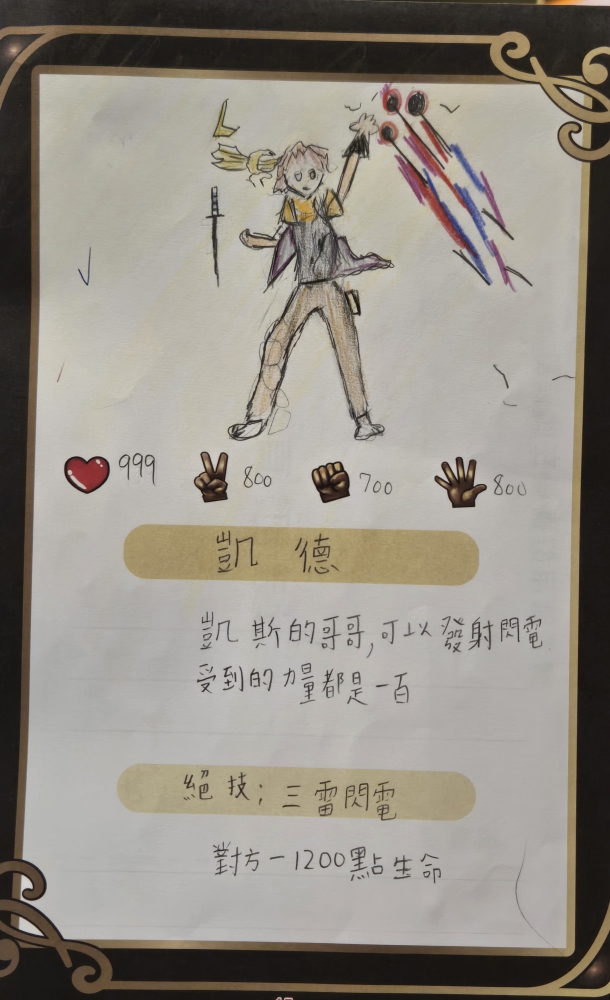 999 800 700 800
凱德
凱斯的哥哥,可以發射閃電
受到的力量都是一百
絕技;三雷閃電
對方-1200點生命